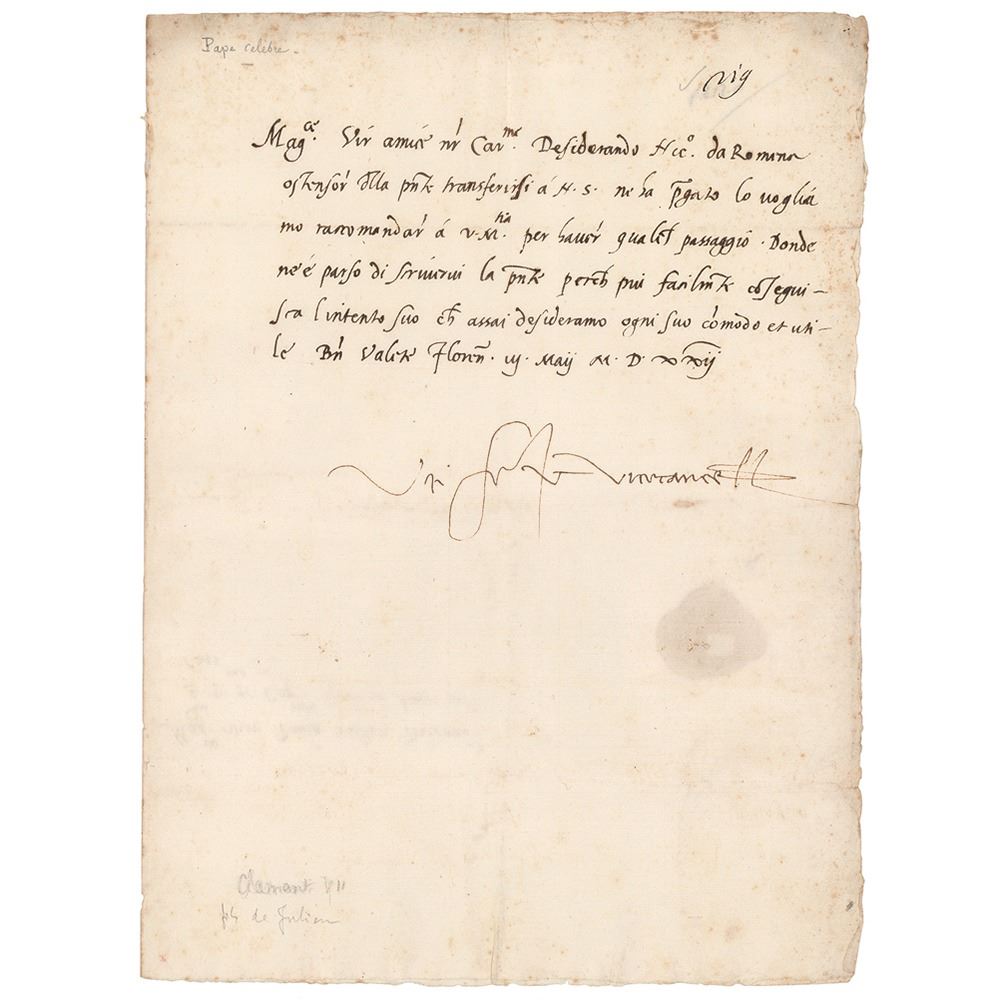 Pape celebre.
vig
Mag.ce Vir amice nr Car.me Desiderando Nic.o da Romena
ostensor dlla pnte transferirsi á N. S. ne ha pgato lo vogliá
mo raccomandar á v. M.tia per haver qualch passaggio. Donde
ne é parso di scrivervi la pnte perch piu facilmte cosegui-
sca l'intento suo ch assai desideramo ogni suo cómodo et uti-
le Bn Valete Floren. iij. Maij M. D. xxij
Vr
vicecancell
Clement VII
fils de Julien